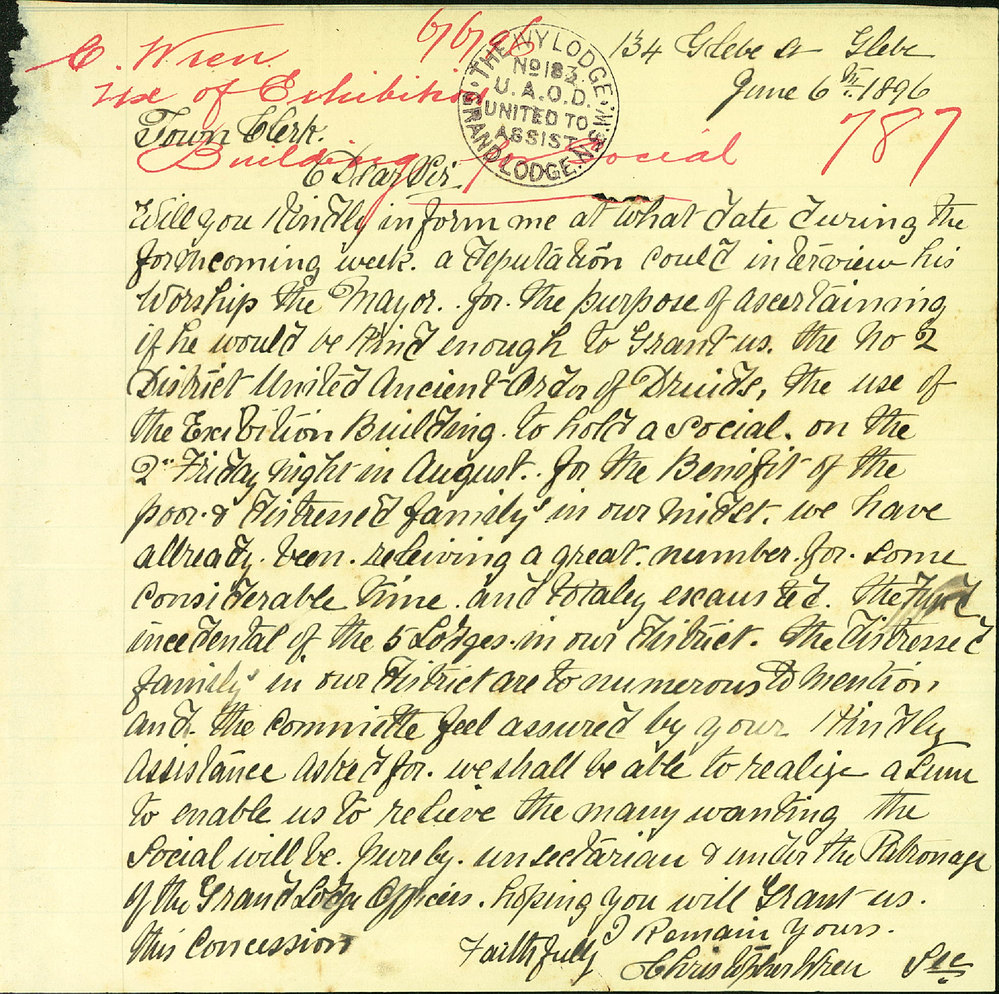 6/6/96
134 Glebe St Glebe
C. Wren.
June 6th 1896
Use of Exhibition
787
Town Clerk.
Building for Social
THE IVY LODGE
No 183.
U.A.O.D.
UNITED TO
ASSIST
GRAND LODGE. N.S.W.
Dear Sir
Will you Kindly inform me at what date during the
forthcoming week. a deputation could interview his
Worship the Mayor. for. the purpose of ascertaining
if he would be Kind enough to Grant us. the No 2
District United Ancient Order of Druids, the use of
the Exibition Building. to hold a social. on the
2nd Friday night in August. for the Benifit of the
poor & distressed familys in our midst. we have
allready. been. releiving a great. number. for. some
considerable time. and totaley exausted. the Fund
incedental of the 5 Lodges. in our district. the distressed
familys in our district are to numerous to mention
and. the Committe feel assured by your Kindly
assistance asked for. we shall be able to realize a sum
to enable us to releive the many wanting the
Social will be. purely. unsectarian & under the Patronage
of the Grand Lodge Officers. hoping you will Grant us.
this Concession
I Remain Yours.
Faithfully
Christopher Wren Sec